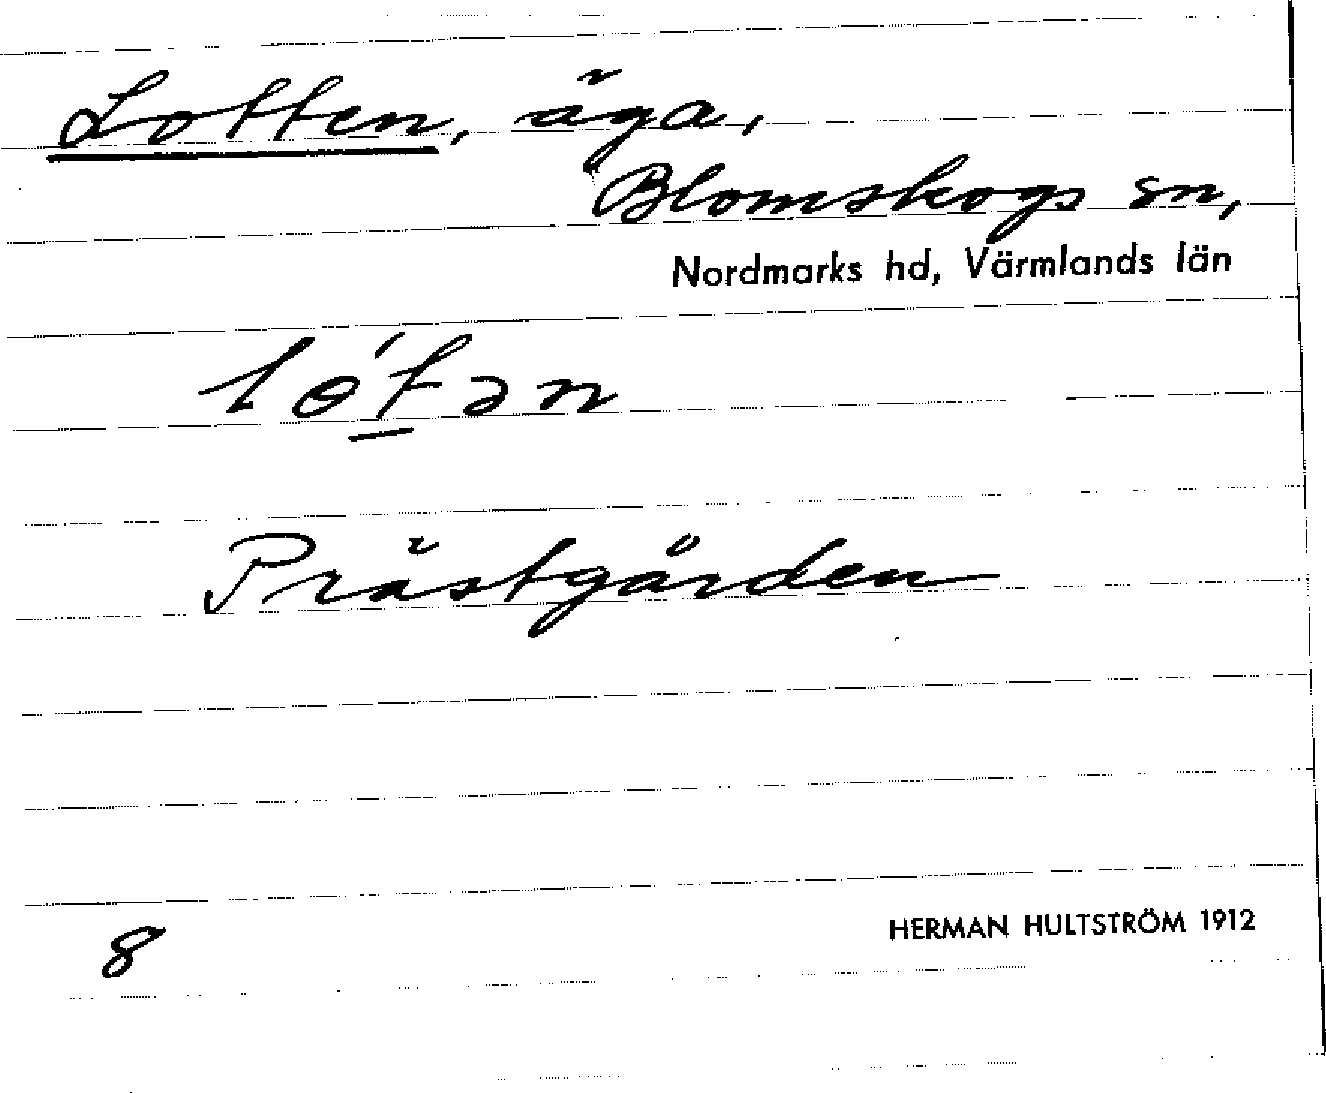 Lotten, äga,
Blomskogs sn,
Nordmarks hd, Värmlands län
lɵ́t̲ən
Prästgården
8
HERMAN HULTSTRÖM 1912